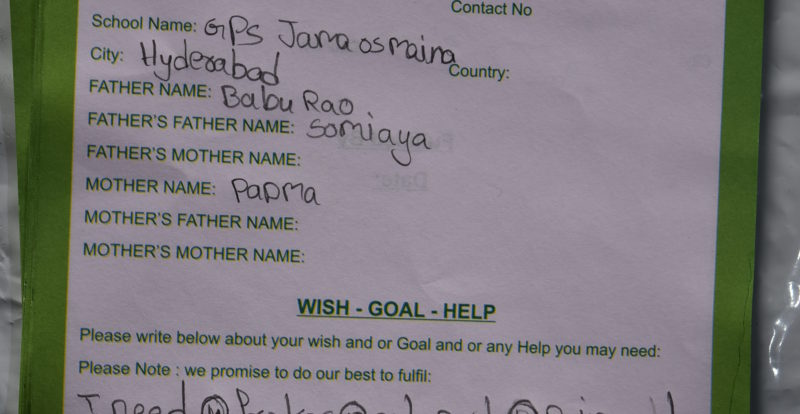 Contact No
School Name: GPS Jamaosmaina
City: Hyderabad Country:
FATHER NAME: Babu Rao
FATHER'S FATHER NAME: Somiaya
FATHER'S MOTHER NAME:
MOTHER NAME: Papma
MOTHER'S FATHER NAME:
MOTHER'S MOTHER NAME:
WISH - GOAL - HELP
Please write below about your wish and or Goal and or any Help you may need:
Please Note : we promise to do our best to fulfil:
I need